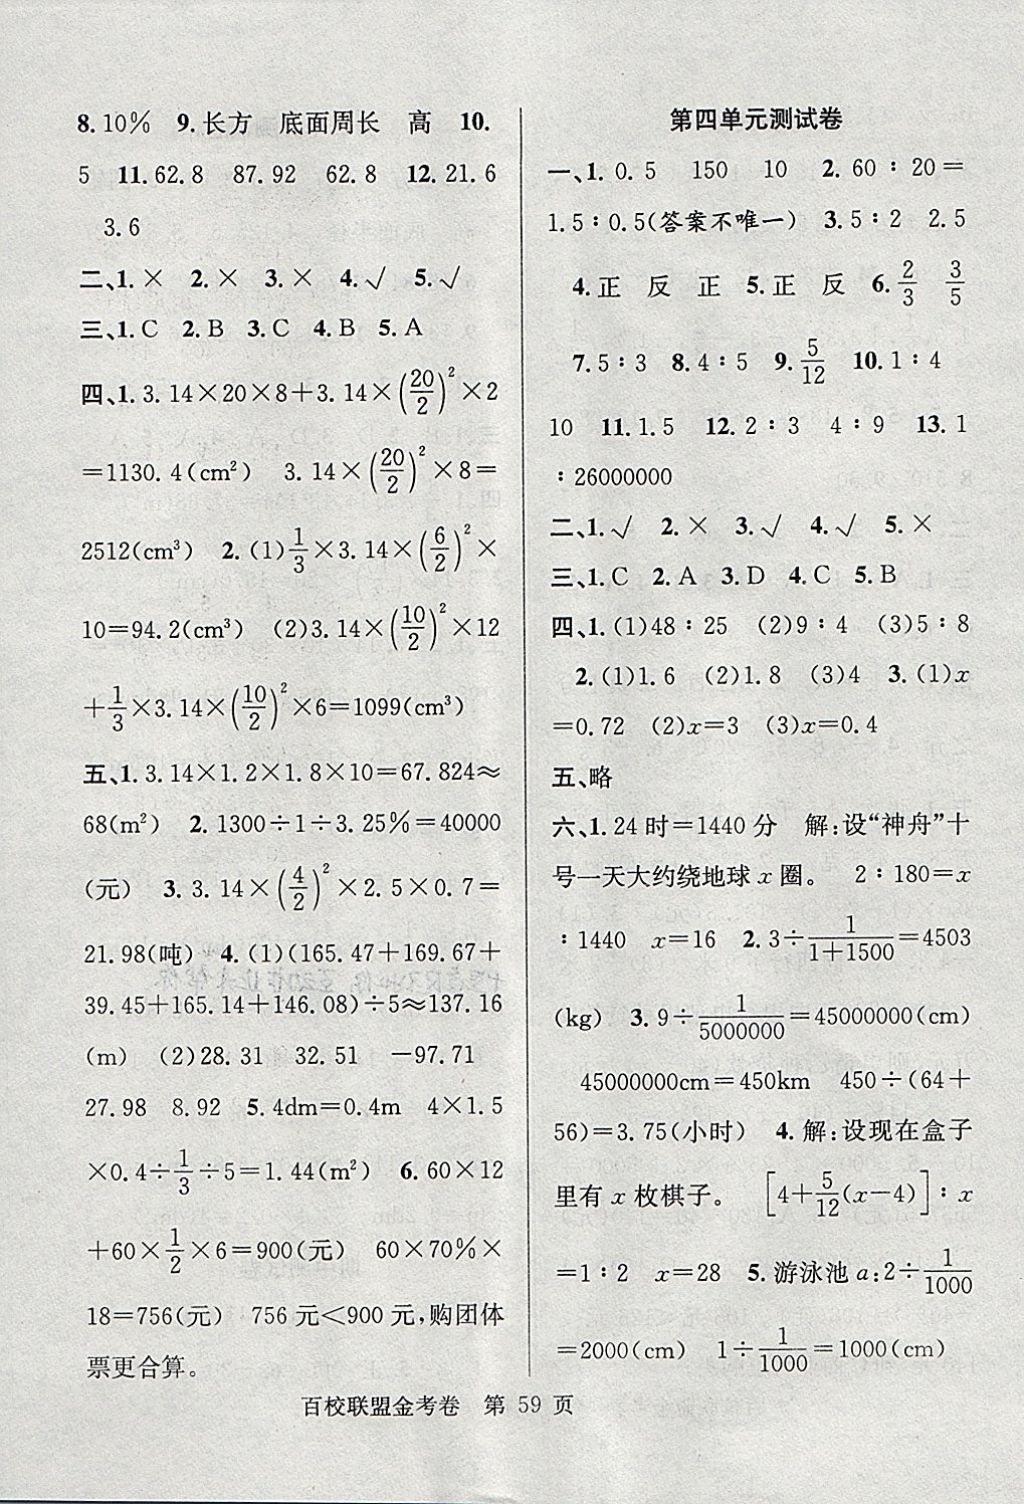 8. 10%　9. 长方　底面周长　高　10.
5　11. 62.8　87.92　62.8　12. 21.6
3.6
二、1. ×　2. ×　3. ×　4. √　5. √
三、1. C　2. B　3. C　4. B　5. A
四、1. 3.14×20×8+3.14×(20/2)²×2
=1130.4(cm²)　3.14×(20/2)²×8=
2512(cm³)　2. (1)1/3×3.14×(6/2)²×
10=94.2(cm³)　(2)3.14×(10/2)²×12
+1/3×3.14×(10/2)²×6=1099(cm³)
五、1. 3.14×1.2×1.8×10=67.824≈
68(m²)　2. 1300÷1÷3.25%=40000
(元)　3. 3.14×(4/2)²×2.5×0.7=
21.98(吨)　4. (1)(165.47+169.67+
39.45+165.14+146.08)÷5≈137.16
(m)　(2)28.31　32.51　-97.71
27.98　8.92　5. 4dm=0.4m　4×1.5
×0.4÷1/3÷5=1.44(m²)　6. 60×12
+60×1/2×6=900(元)　60×70%×
18=756(元)　756元<900元,购团体
票更合算。
第四单元测试卷
一、1. 0.5　150　10　2. 60∶20=
1.5∶0.5(答案不唯一)　3. 5∶2　2.5
4. 正　反　正　5. 正　反　6. 2/3　3/5
7. 5∶3　8. 4∶5　9. 5/12　10. 1∶4
10　11. 1.5　12. 2∶3　4∶9　13. 1
∶26000000
二、1. √　2. ×　3. √　4. √　5. ×
三、1. C　2. A　3. D　4. C　5. B
四、1. (1)48∶25　(2)9∶4　(3)5∶8
2. (1)1.6　(2)1.8　(3)4　3. (1)x
=0.72　(2)x=3　(3)x=0.4
五、略
六、1. 24时=1440分　解:设“神舟”十
号一天大约绕地球x圈。　2∶180=x
∶1440　x=16　2. 3÷1/(1+1500)=4503
(kg)　3. 9÷1/5000000=45000000(cm)
45000000cm=450km　450÷(64+
56)=3.75(小时)　4. 解:设现在盒子
里有x枚棋子。　[4+5/12(x-4)]∶x
=1∶2　x=28　5. 游泳池a:2÷1/1000
=2000(cm)　1÷1/1000=1000(cm)
百校联盟金考卷　第 59 页